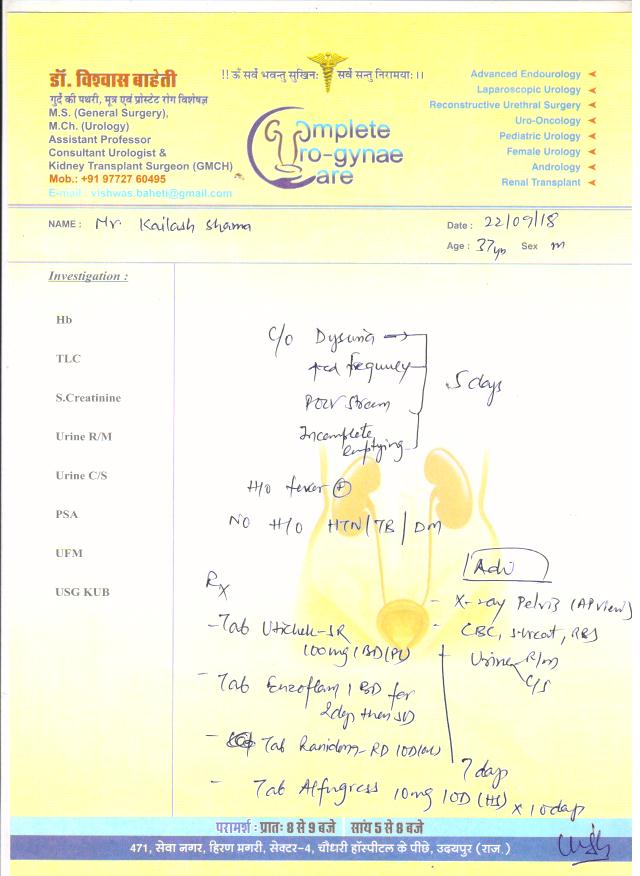 !! ॐ सर्वे भवन्तु सुखिनः सर्वे सन्तु निरामयाः ।।
डॉ. विश्वास बाहेती
गुर्दे की पथरी, मूत्र एवं प्रोस्टेट रोग विशेषज्ञ
M.S. (General Surgery),
M.Ch. (Urology)
Assistant Professor
Consultant Urologist &
Kidney Transplant Surgeon (GMCH)
Mob.: +91 97727 60495
E-mail : vishwas.baheti@gmail.com
Complete
Uro-gynae
Care
Advanced Endourology
Laparoscopic Urology
Reconstructive Urethral Surgery
Uro-Oncology
Pediatric Urology
Female Urology
Andrology
Renal Transplant
NAME : Mr. Kailash Sharma
Date : 22/09/18
Age : 37yrs Sex m
Investigation :
Hb
TLC
S.Creatinine
Urine R/M
Urine C/S
PSA
UFM
USG KUB
C/O Dysuria
frequency
Poor stream
Incomplete
emptying
5 days
H/o fever +
NO H/O HTN/TB/DM
Rx
- Tab
SR
100mg 1BD
- Tab Enzoflam 1 BD for
2days then SD
- Tab RD 1OD
- Tab 10mg 1OD (HS) x 10days
7 days
Adv
- X-ray Pelvis (AP view)
- CBC, S.creat, RBS
- Urine R/m
C/S
परामर्श : प्रातः 8 से 9 बजे सायं 5 से 8 बजे
471, सेवा नगर, हिरण मगरी, सेक्टर-4, चौधरी हॉस्पीटल के पीछे, उदयपुर (राज.)